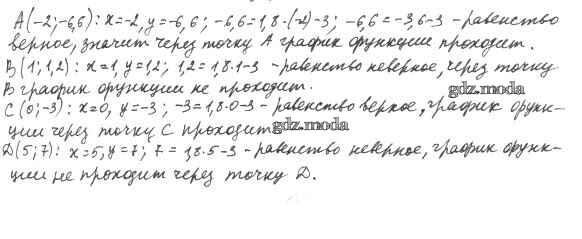 A(-2;-6,6): x=-2, y=-6,6; -6,6=1,8·(-2)-3; -6,6=-3,6-3 - равенство
верное, значит через точку A график функции проходит.
B(1;1,2): x=1, y=1,2; 1,2=1,8·1-3 - равенство неверное, через точку
B график функции не проходит.
gdz.moda
C(0;-3): x=0, y=-3; -3=1,8·0-3 - равенство верное, график функ-
ции через точку C проходит
gdz.moda
D(5;7): x=5, y=7; 7=1,8·5-3 - равенство неверное, график функ-
ции не проходит через точку D.